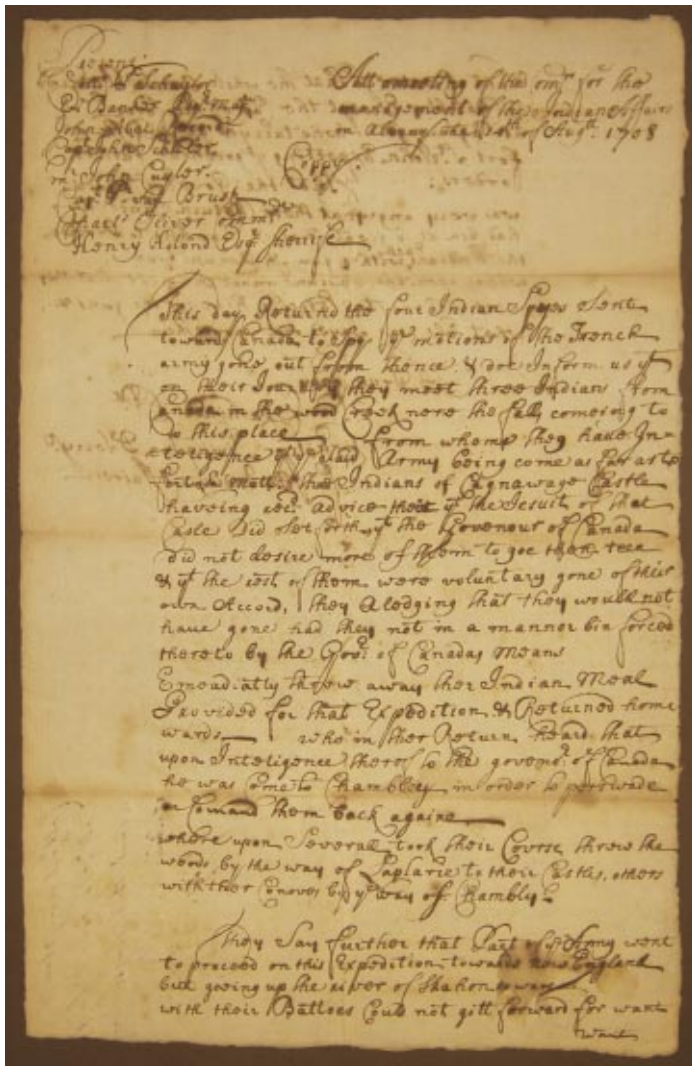 Present
Schuyler
Banker Esqr
John
Capt John Schuyler
mr John Cuyler
Brust
Oliver
Henry Holond Esqr Sheriffe
Att a meeting of the for the
management of the Indian Affairs
in Albany of Augt. 1708
Copy
This day Returnd the four Indian Spyes Sent
towards Canada to spy ye motions of the French
army gone out from thence & doe Inform us yt
on their they meet three Indians from
Canada in the wood Creek nere the falls comeing to
to this place From whome they have In=
teligence Said Army being come as far as the
the Indians of Cagnawage Castle
haveing advice yt the Jesuit of that
Castle did set forth yt the Govenour of Canada
did not desire more of them to goe then teen
& yt the rest of them were voluntary gone of their
own Accord, they Aledging that they would not
have gone had they not in a manner bin forced
thereto by the Govr. of Canadas Means
Emeadiatly threw away ther Indian Meal
Provided for that Expedition & Returned home
wards who in ther Return heard that
upon Inteligence thereof to the govenr. of Canada
he was Come to Chambley in order to perswade
or Comand them back againe
where upon Severall took their Course threw the
woods by the way of Laplarie to their Castles, others
with ther Canoes by ye way of Chambly
They Say further that Part of Army went
to proceed on this Expedition towards new England
but going up the river of
with their Battoes Could not gitt forward for want